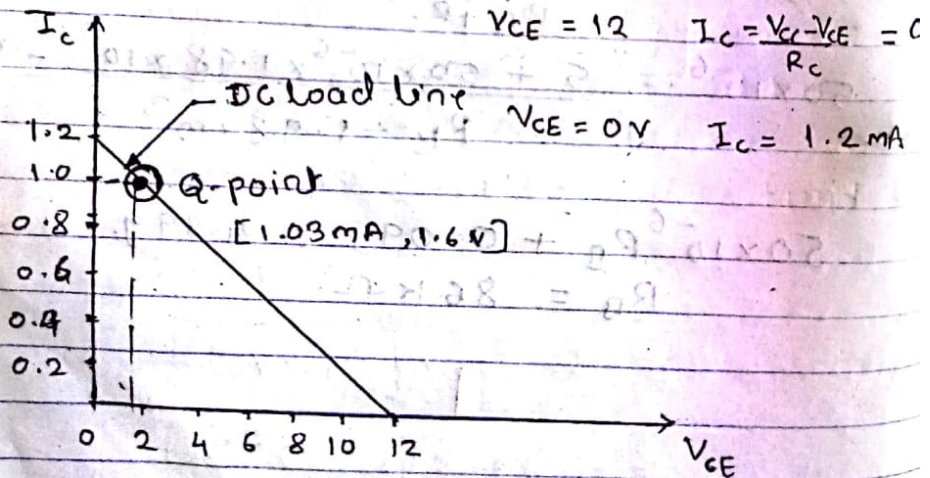 I_c
V_CE = 12 I_c = V_cc-V_CE / R_c =
DC load line
V_CE = 0V I_c = 1.2 mA
1.2
1.0 Q-point
0.8 [1.03mA, 1.6V]
0.6
0.4
0.2
0 2 4 6 8 10 12
V_CE